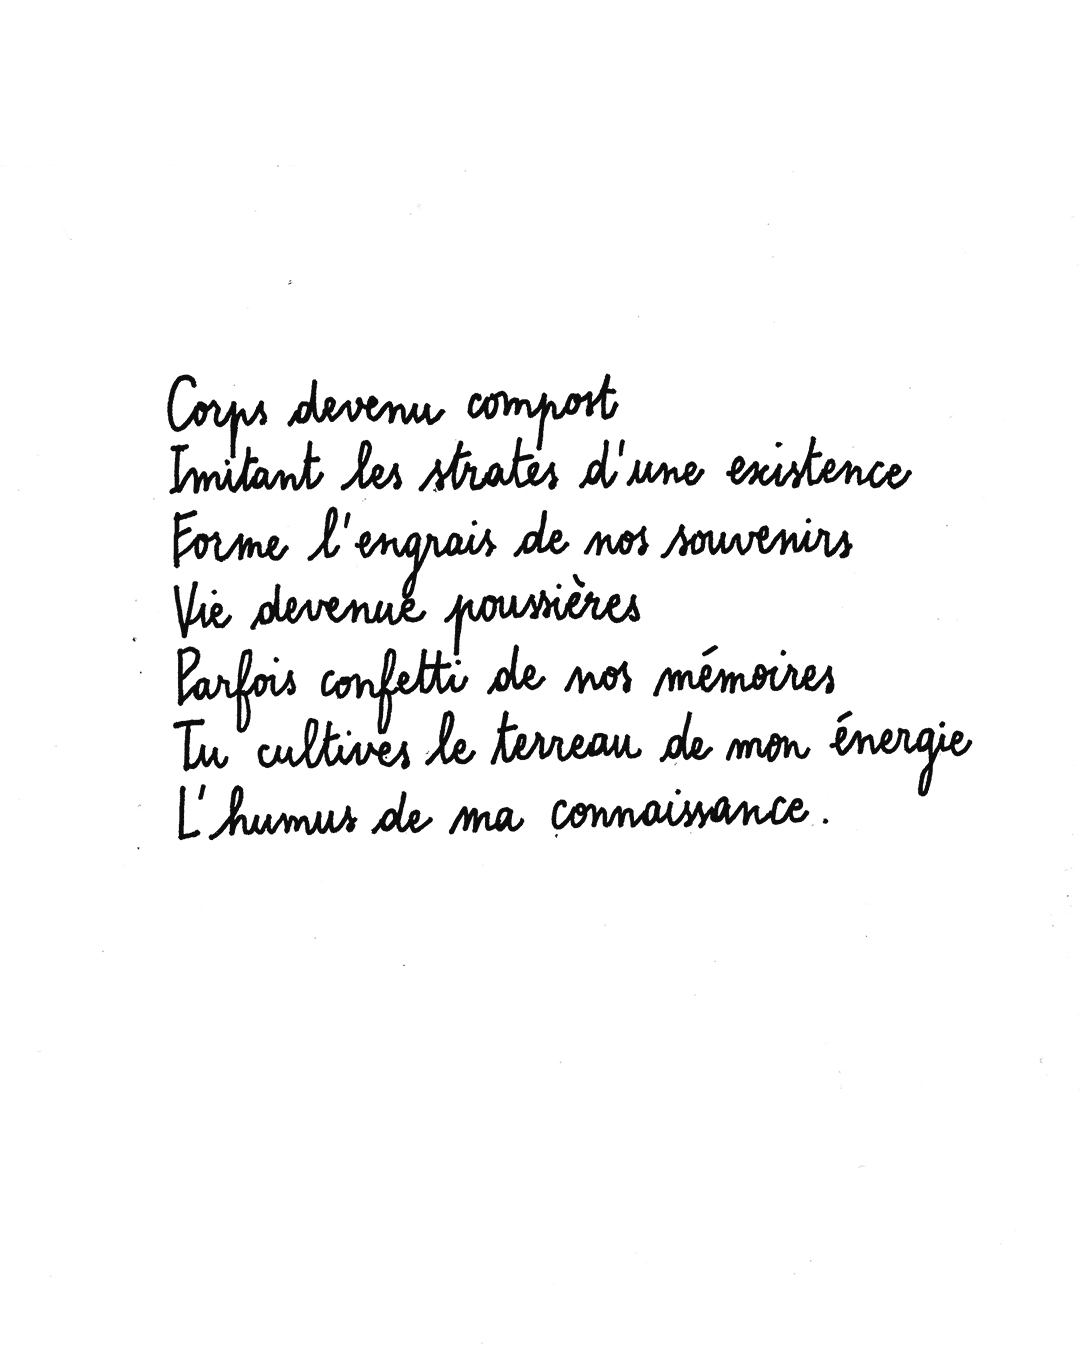 Corps devenu compost
Imitant les strates d'une existence
Forme l'engrais de nos souvenirs
Vie devenue poussières
Parfois confetti de nos mémoires
Tu cultives le terreau de mon énergie
L'humus de ma connaissance.